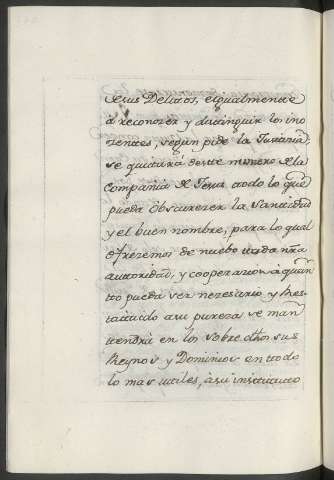 de sus Delitos, e igualmente
á reconozer y distinguir los ino
zentes, segun pide la Justicia,
se quitará deste modo de la
Compañia de Jesus todo lo que
pueda obscurezer la Santidad
y el buen nombre, para lo qual
ofrezemos de nuebo toda nra
autoridad, y cooperazion á quan
tto pueda ser nezesario y Res-
tituido a su pureza se man
tendrá en los sobre dhos sus
Reynos y Dominios en todo
lo mas utiles, a su instituto